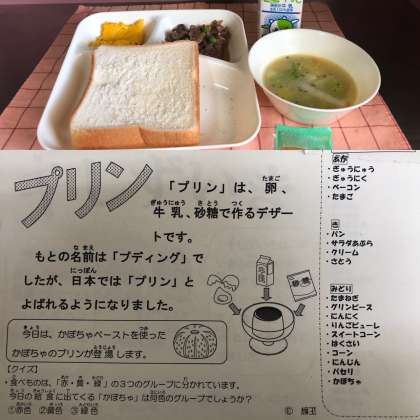 プリン
「プリン」は、卵、
牛乳、砂糖で作るデザー
トです。
もとの名前は「プディング」で
したが、日本では「プリン」と
よばれるようになりました。
今日は、かぼちゃペーストを使った
かぼちゃのプリンが登場します。
【クイズ】
・食べものは、「赤・黄・緑」の3つのグループに分かれています。
今日の給食に出てくる「かぼちゃ」は何色のグループでしょうか?
①赤色 ②黄色 ③緑色
牛乳
砂糖
あか
・ぎゅうにゅう
・ぎゅうにく
・ベーコン
・たまご
き
・パン
・サラダあぶら
・クリーム
・さとう
みどり
・たまねぎ
・グリンピース
・にんにく
・りんごピューレ
・スイートコーン
・はくさい
・コーン
・にんじん
・パセリ
・かぼちゃ